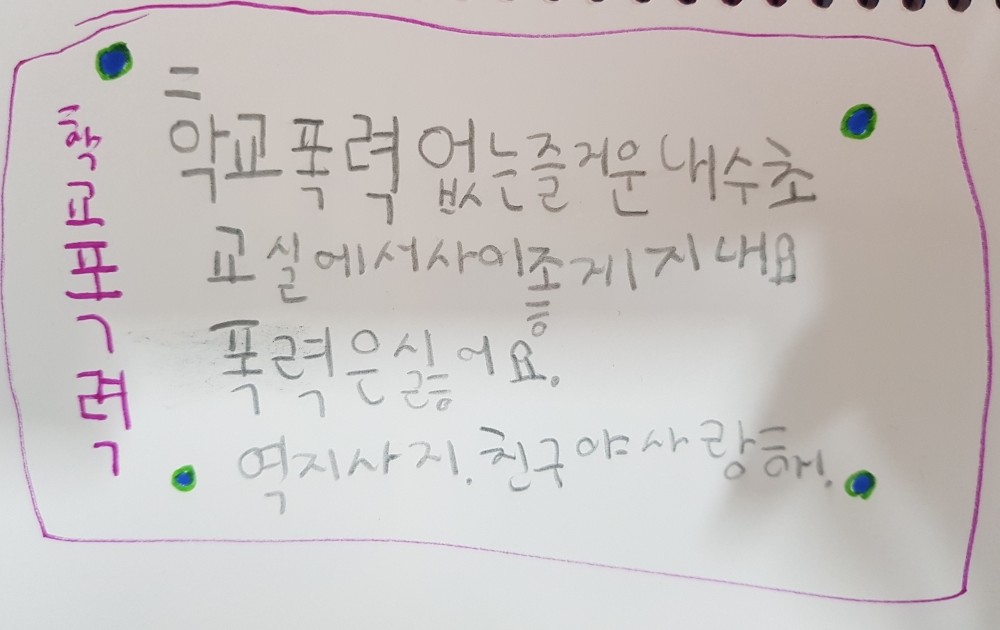 학교폭력
학교폭력 없는 즐거운 내수초
교실에서 사이좋게 지내요
폭력은 싫어요.
역지사지. 친구야 사랑해.